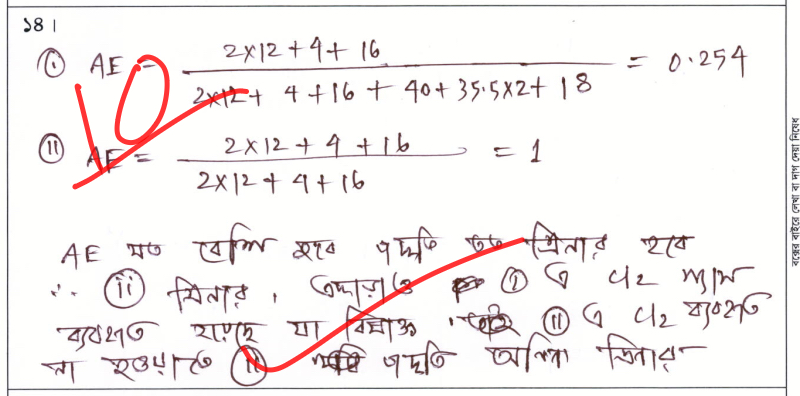 ১৪।
(i) AE = 2×12+4+16 / 2×12+ 4+16 + 40+35.5×2+ 18 = 0.254
10
(ii) AE = 2×12+4+16 / 2×12+4+16 = 1
AE যত বেশি হবে পদ্ধতি তত গ্রিনার হবে
∴ (ii) গ্রিনার, এছাড়াও (i) এ Cl2 গ্যাস
ব্যবহৃত হয়েছে যা বিষাক্ত। (ii) এ Cl2 ব্যবহৃত
না হওয়াতে (ii) পদ্ধতি অধিক গ্রিনার
বক্সের বাইরে লেখা বা দাগ দেয়া নিষেধ